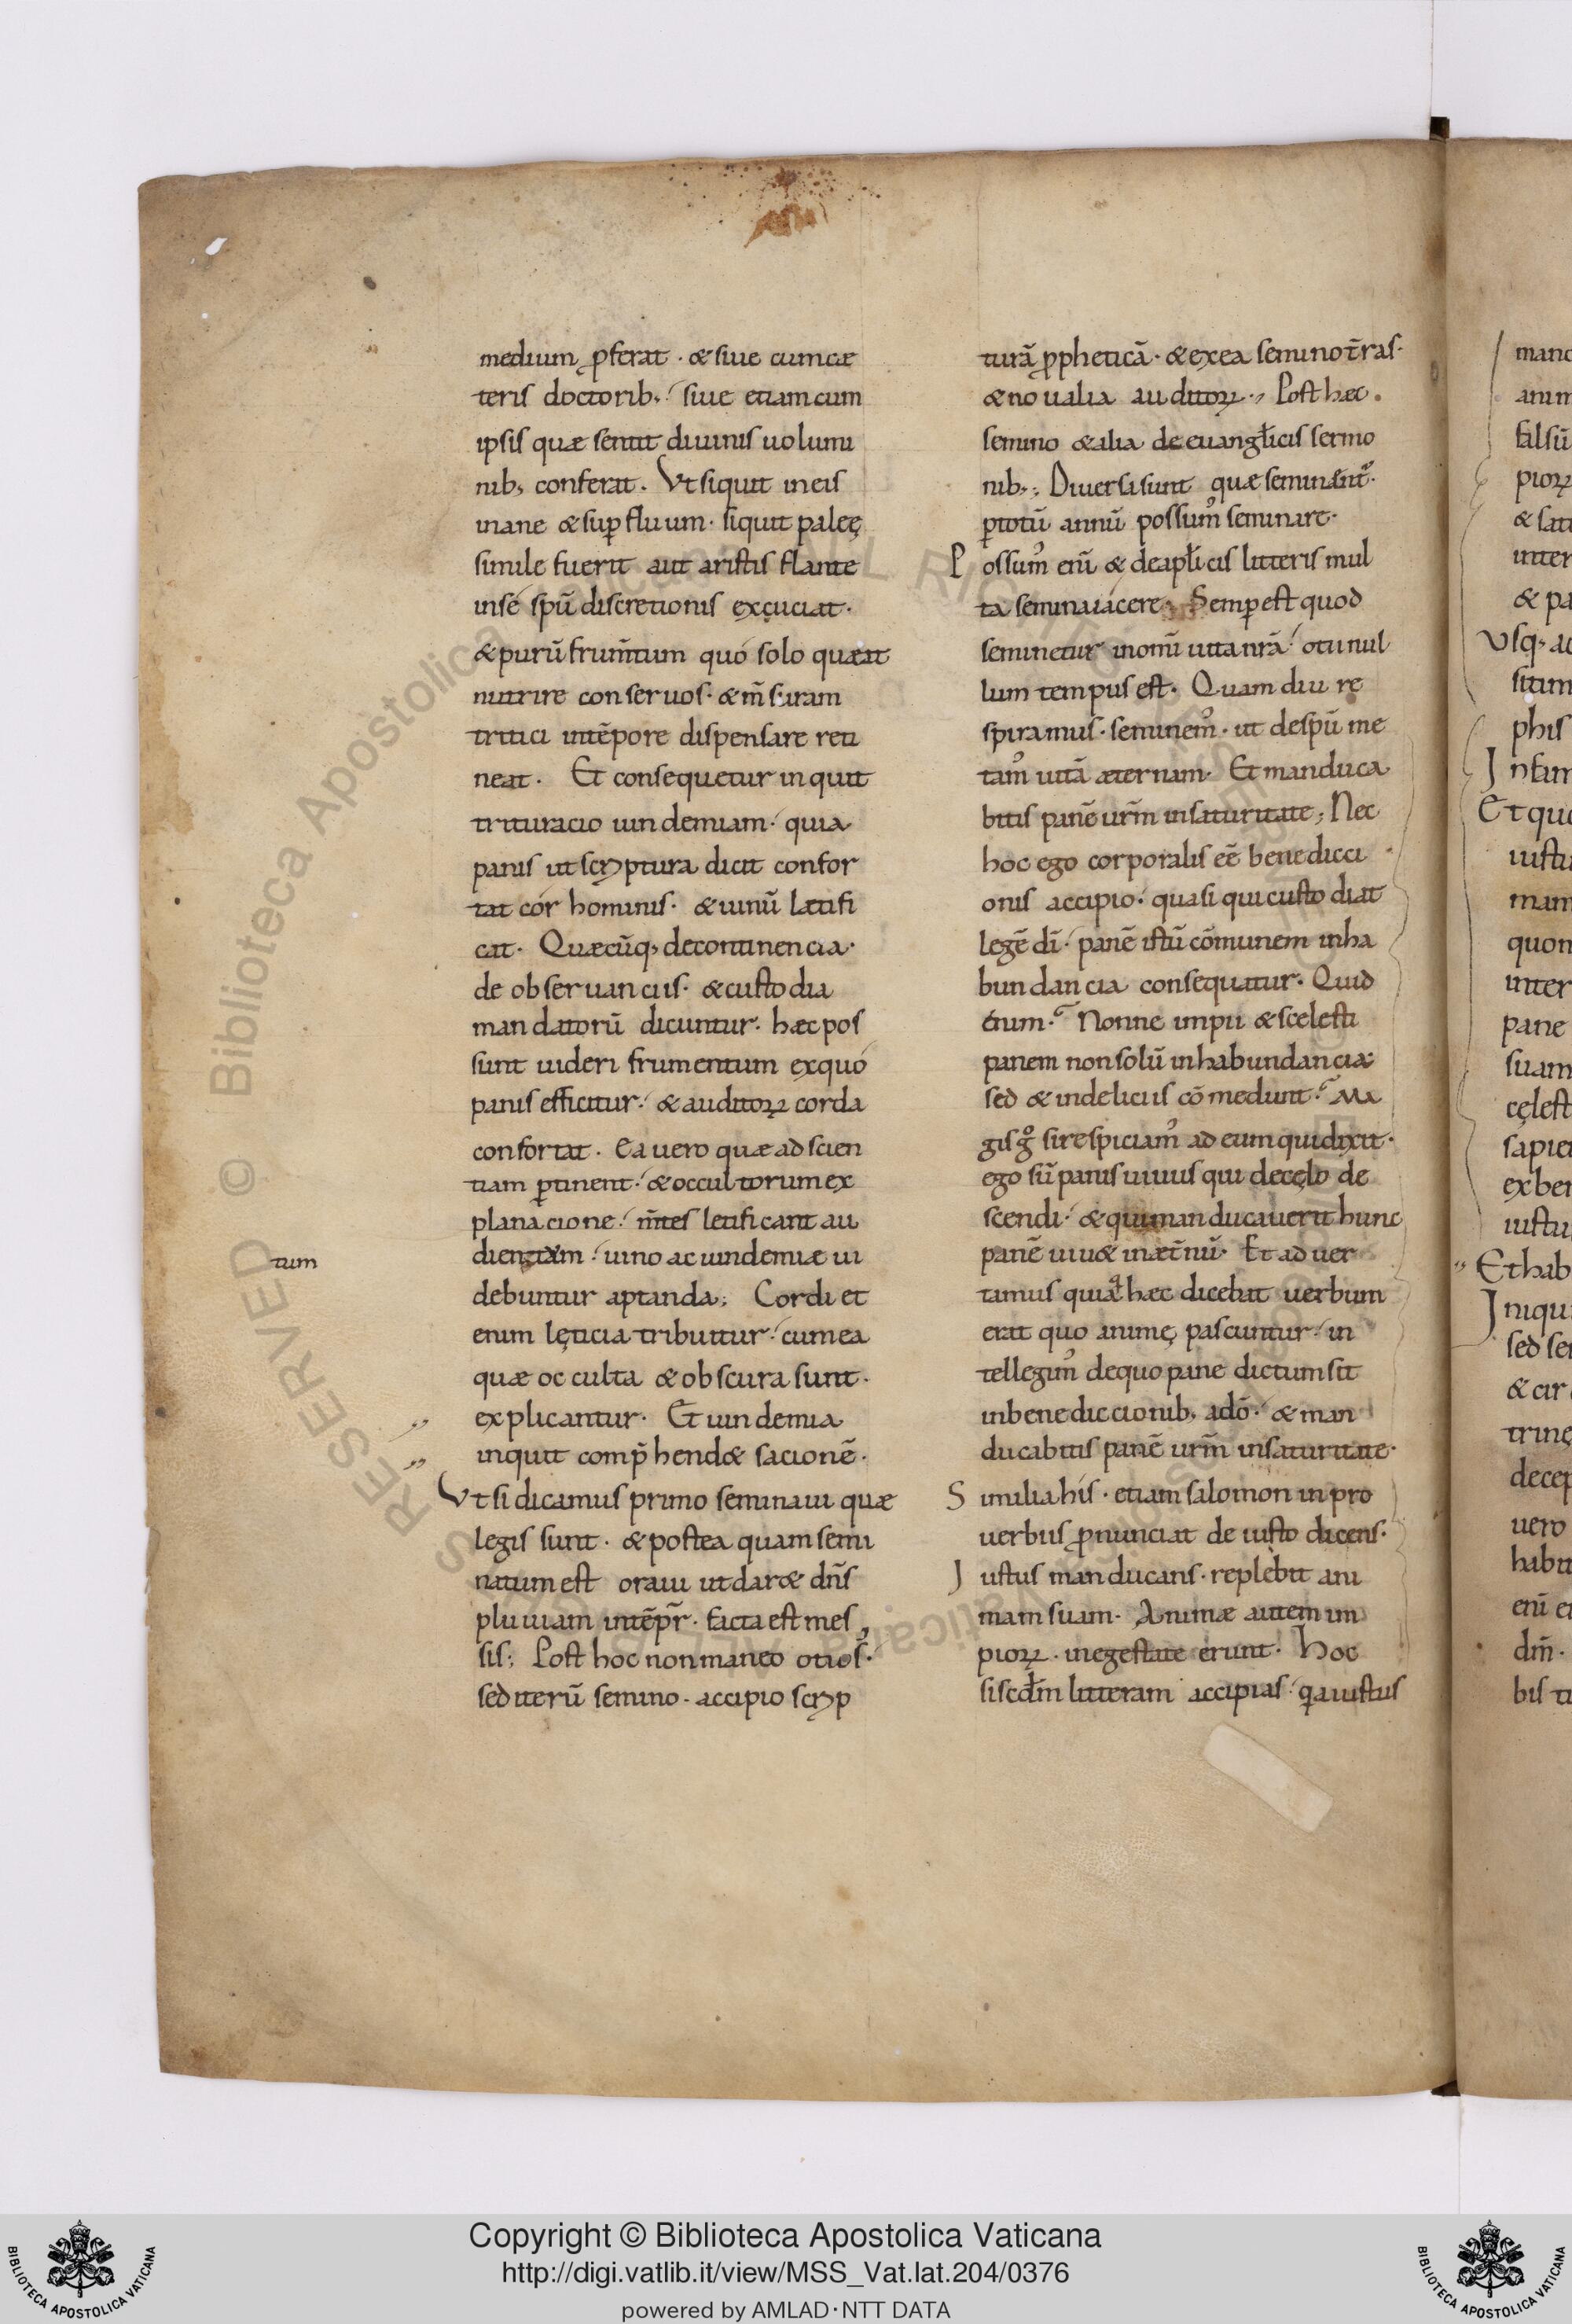 medium ꝓferat · & siue cum cæ
teris doctorib; siue etiam cum
ipsis quæ sentit diuinis uolumi
nib; conferat. Vt si quit in eis
inane & sup̱fluum · siquit paleę
simile fuerit aut aristis flante
in se spū discretionis excuciat ·
& purū frum̄tum quó solo quæat
nutrire conseruos · & m̄suram
tritici in tēpore dispensare reti
neat · Et consequetur inquit
trituracio uindemiam · quia
panis ut scryptura dicit confor
tat cor hominis · & uinū lætifi
cat · Quæcūq; de continencia ·
de obseruanciis · & custodia
mandatorū dicuntur · hæc pos
sunt uideri frumentum ex quó
panis efficitur · & auditoꝝ corda
confortat · Ea uero quæ ad scien
tiam ꝑtinent · & occultorum ex
planacione · m̄tes letificant au
tum
dientium · uino ac uindemiæ ui
debuntur aptanda; Cordi et
enim lęticia tribuitur · cum ea
quæ occulta & obscura sunt ·
explicantur · Et uindemia
inquit comp̄hendet sacionē ·
Vt si dicamus primo seminaui quæ
legis sunt · & postea quam semi
natum est oraui ut daret dn̄s
pluuiam in tēpr̄ · facta est mes
sis; Post hoc non maneo otios᾽ ·
sed iterū semino · accipio scryp
turā ꝓpheticā · & ex ea semino t̄ras ·
& noualia auditoꝝ · Post hæc ·
semino & alia de euangl̄icis sermo
nib; Diuersi sunt quæ seminent᾽ ·
ꝑ totū annū possum᾽ seminare ·
Possum᾽ enī & de apl̄icis litteris mul
ta semina iacere · Semꝑ est quod
seminetur in omī uita nr̄a · otii nul
lum tempus est · Quam diu re
spiramus · seminem᾽ · ut de spū me
tam᾽ uitā æternam · Et manduca
bitis panē ur̄m in saturitate; Nec
hoc ego corporalis eē benedicci
onis accipio · quasi qui custodiat
legē dī · panē istū cōmunem in ha
bundancia consequatur · Quid
enim · Nonne impii & scelesti
panem non solū in habundancia
sed & in deliciis cōmedunt · Ma
gis gͦ si respiciam᾽ ad eum qui dixit ·
ego sū panis uiuus qui de cęlo de
scendi · & qui manducauerit hunc
panē uiuet in æt̄nū · Et aduer
tamus quia hæc dicebat uerbum
erat quo animę pascuntur · in
tellegim᾽ de quo pane dictum sit
in benediccionib; ad ō · & man
ducabitis panē ur̄m in saturitate ·
Similia his · etiam salomon in pro
uerbiis ꝓnunciat de iusto dicens ·
Iustus manducans · replebit ani
mam suam · Animæ autem im
pioꝝ · in egestate erunt · Hoc
si scd̄m litteram accipias · qa iustus